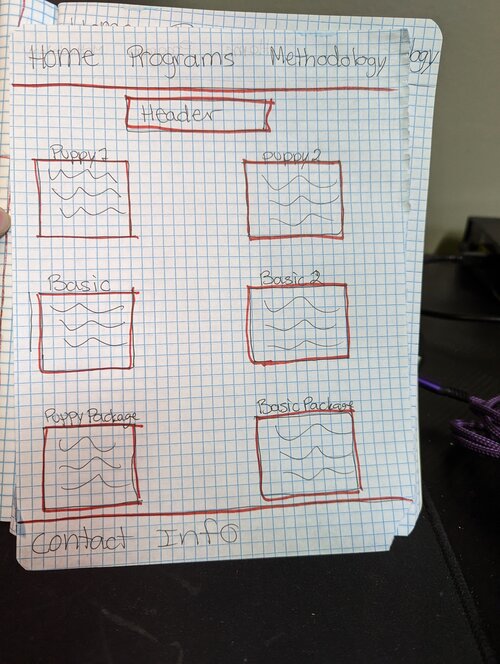 Home Programs Methodology
ogy
Header
Puppy 1 puppy 2
Basic Basic 2
Puppy Package Basic Package
Contact Info